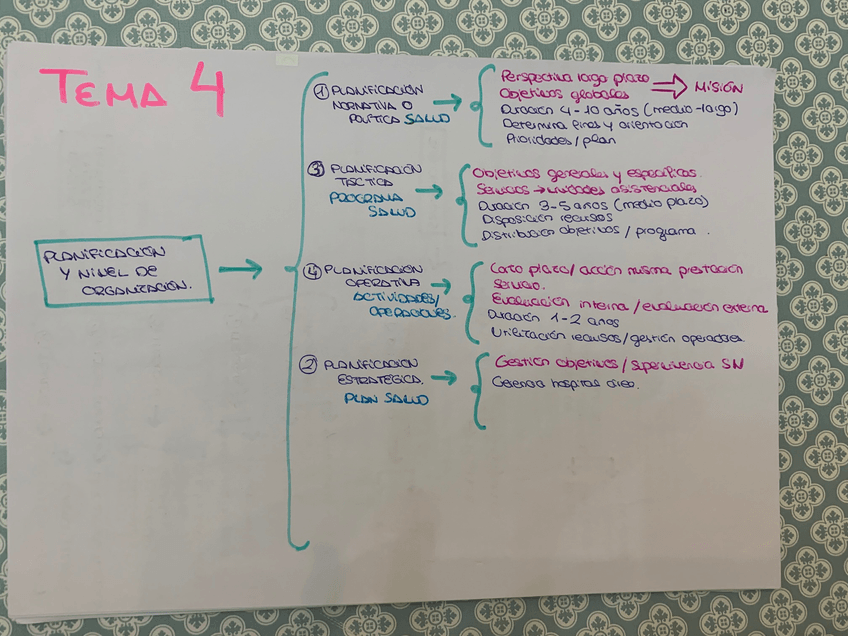 TEMA 4
PLANIFICACIÓN
Y NIVEL DE
ORGANIZACIÓN.
① PLANIFICACIÓN
NORMATIVA O
POLÍTICA SALUD
Perspectiva largo plazo
Objetivos globales
MISIÓN
Duración 4-10 años (medio-largo)
Determina fines y orientación
Prioridades/plan
③ PLANIFICACIÓN
TÁCTICA
PROGRAMA
SALUD
Objetivos generales y específicos.
Servicios → unidades asistenciales
Duración 3-5 años (medio plazo)
Disposición recursos
Distribución objetivos / programa.
④ PLANIFICACIÓN
OPERATIVA
ACTIVIDADES/
OPERACIONES.
Corto plazo/acción misma prestación
servicio.
Evaluación interna/evaluación externa
Duración 1-2 años
Utilización recursos/gestión operaciones.
② PLANIFICACIÓN
ESTRATÉGICA.
PLAN SALUD
Gestión objetivos/supervivencia SN
Gerencia hospital área.